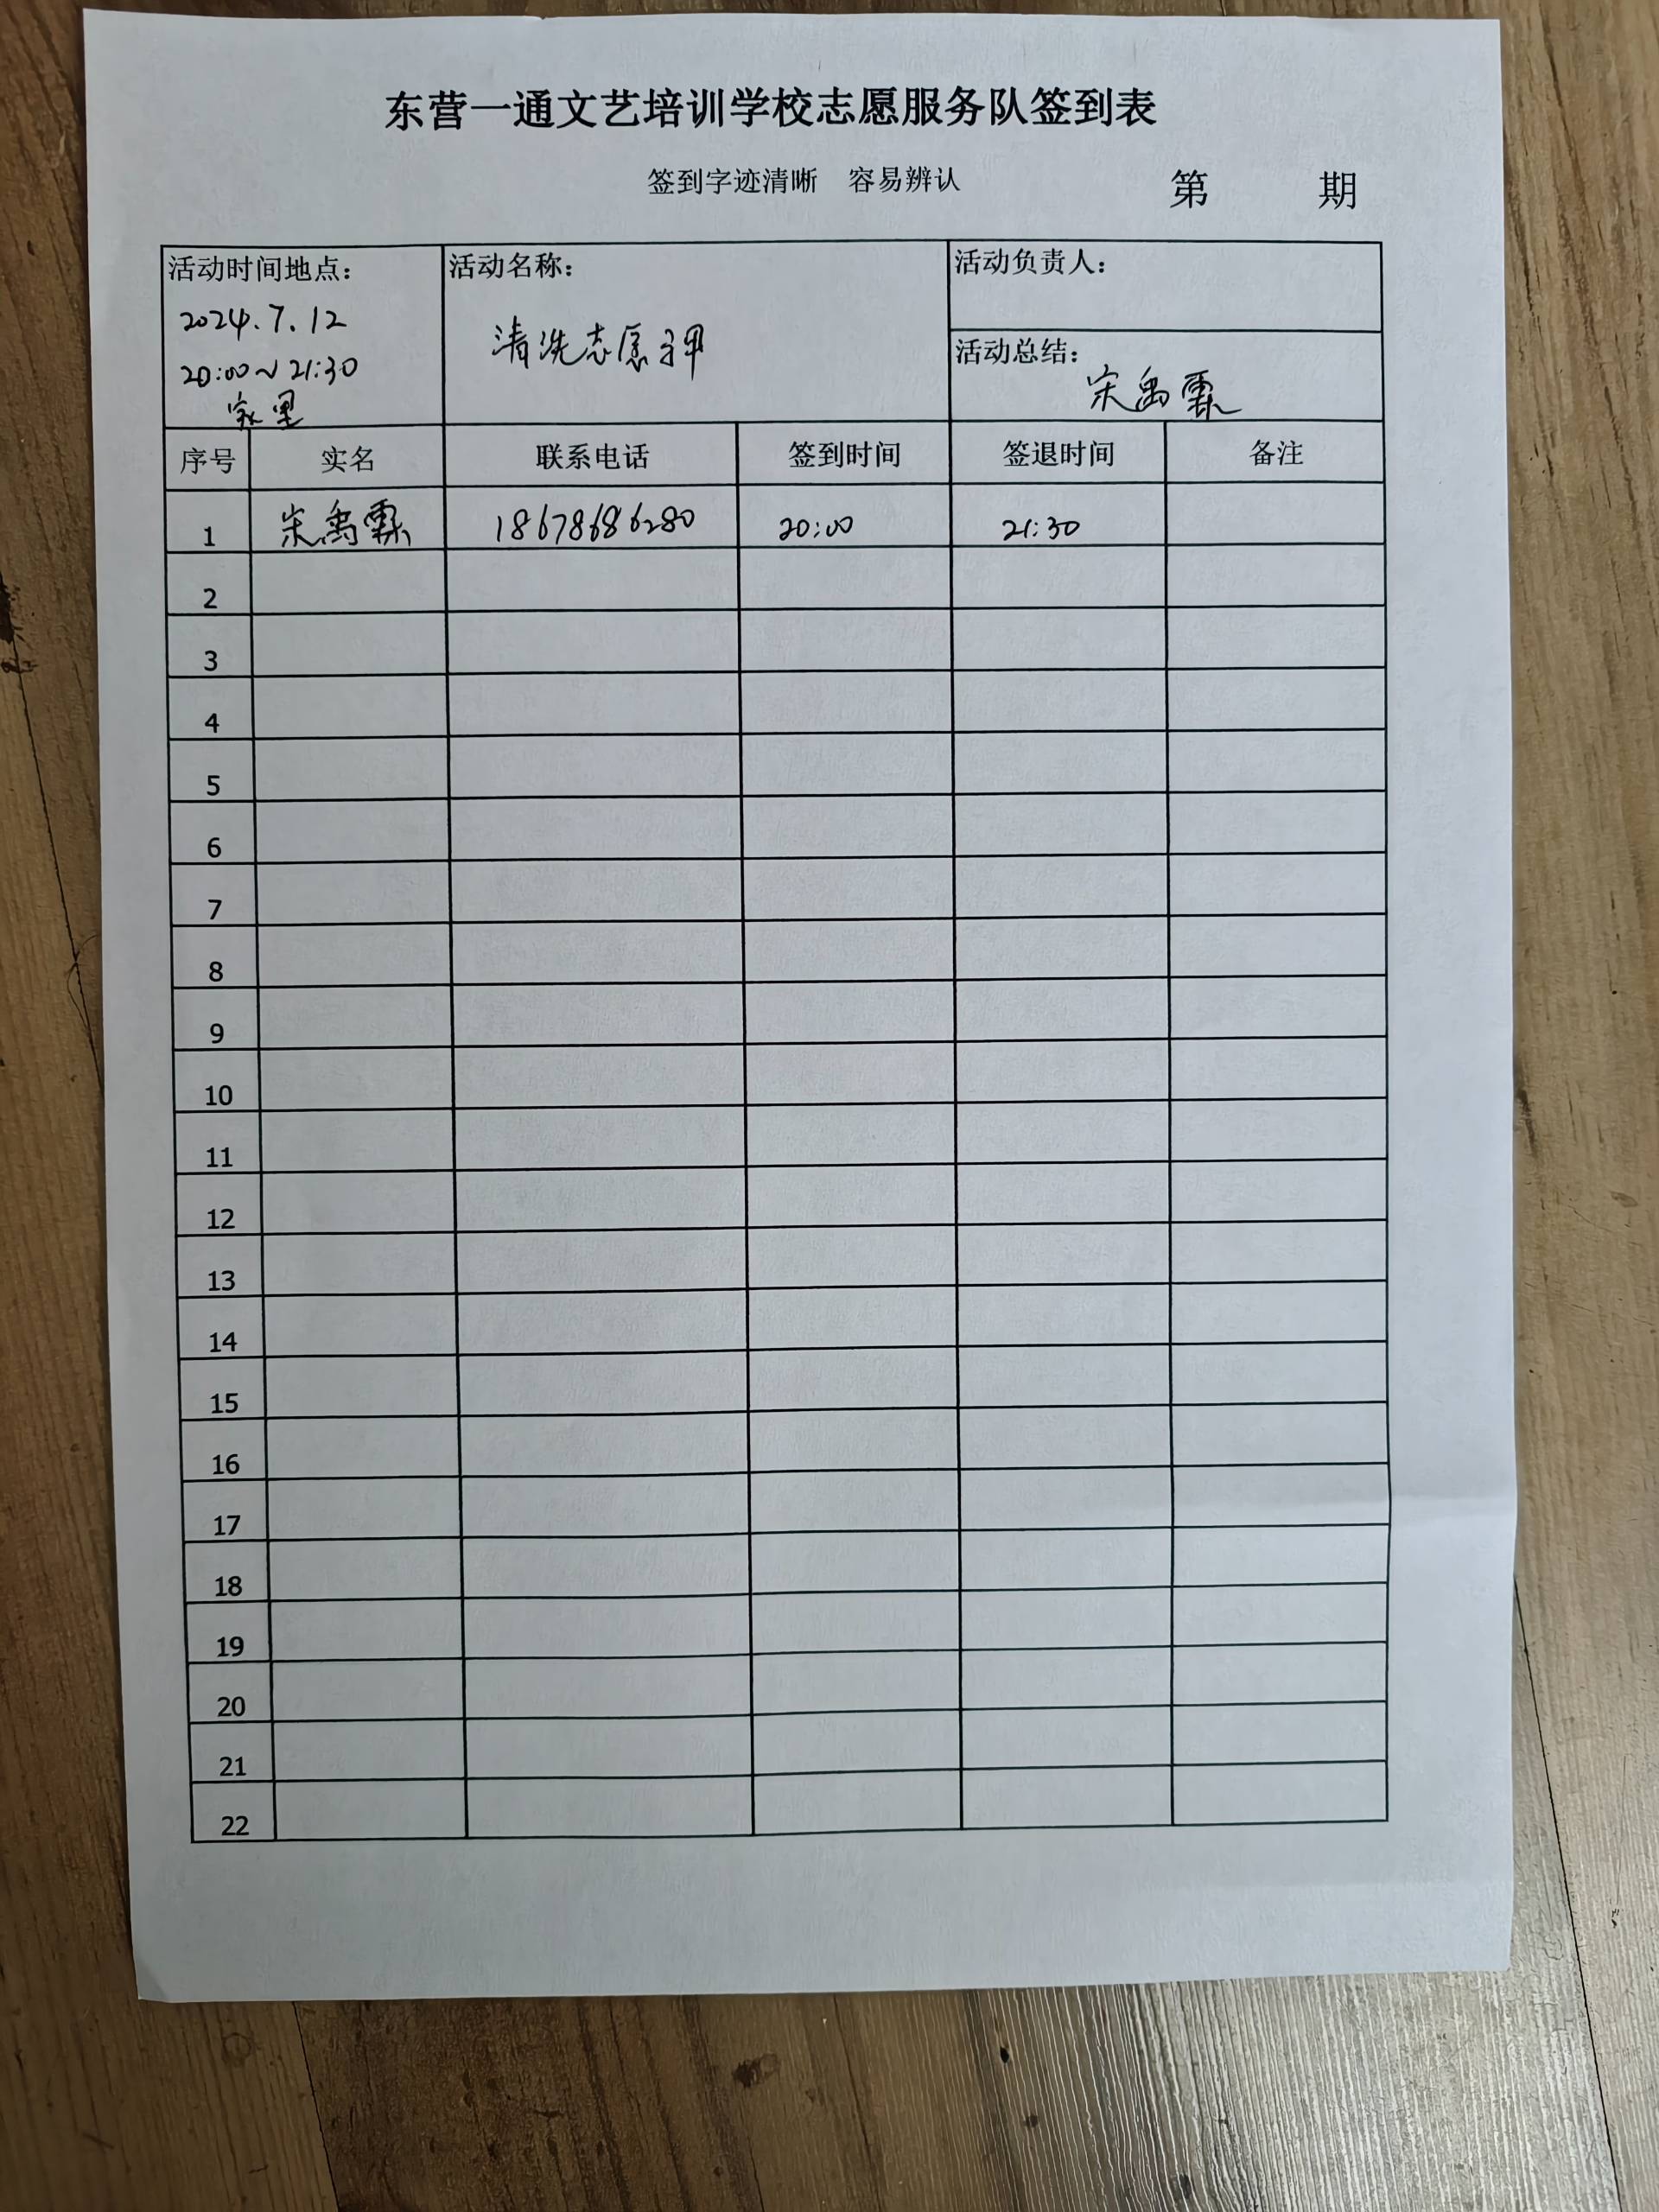 东营一通文艺培训学校志愿服务队签到表
签到字迹清晰 容易辨认
第 期
活动时间地点：
2024.7.12
20:00~21:30
家里
活动名称：
清洗志愿
活动负责人：
活动总结：
宋禹霖
序号 实名 联系电话 签到时间 签退时间 备注
1 宋禹霖 18678686280 20:00 21:30
2
3
4
5
6
7
8
9
10
11
12
13
14
15
16
17
18
19
20
21
22